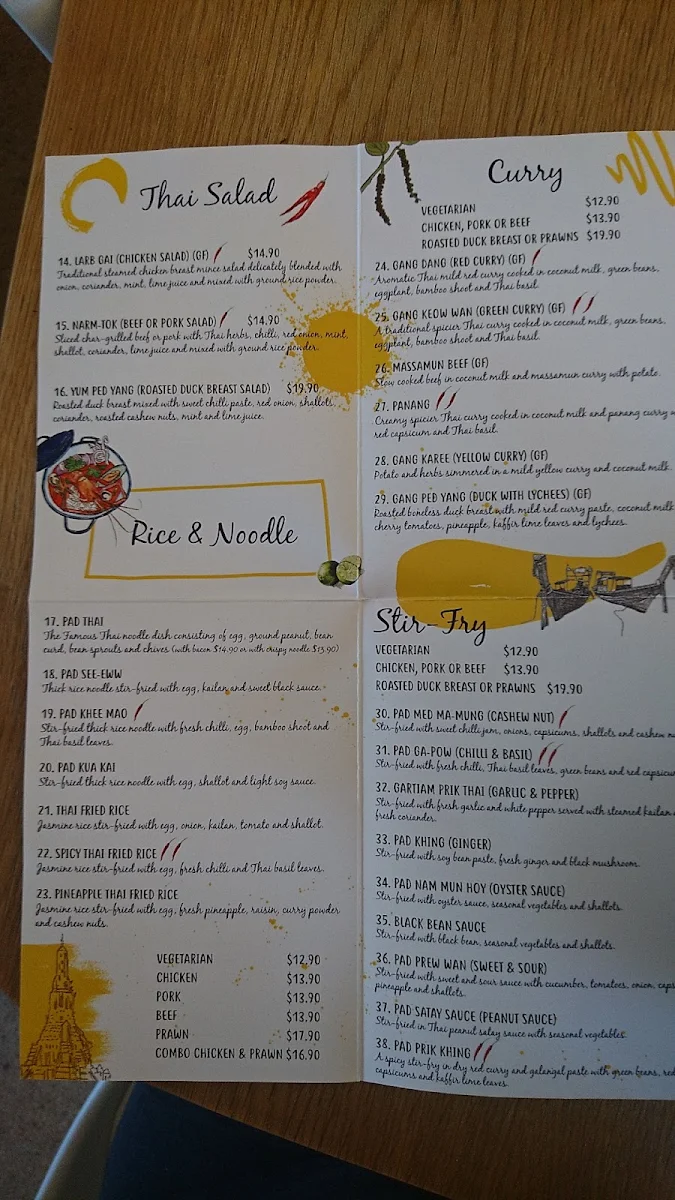 Thai Salad
14. LARB GAI (CHICKEN SALAD) (GF) $14.90
Traditional steamed chicken breast mince salad delicately blended with
onion, coriander, mint, lime juice and mixed with ground rice powder.
15. NARM-TOK (BEEF OR PORK SALAD) $14.90
Sliced char-grilled beef or pork with Thai herbs, chilli, red onion, mint,
shallot, coriander, lime juice and mixed with ground rice powder.
16. YUM PED YANG (ROASTED DUCK BREAST SALAD) $19.90
Roasted duck breast mixed with sweet chilli paste, red onion, shallots,
coriander, roasted cashew nuts, mint and lime juice.
Rice & Noodle
17. PAD THAI
The Famous Thai noodle dish consisting of egg, ground peanut, bean
curd, bean sprouts and chives (with bacon $14.90 or with crispy noodle $13.90)
18. PAD SEE-EWW
Thick rice noodle stir-fried with egg, kailan and sweet black sauce.
19. PAD KHEE MAO
Stir-fried thick rice noodle with fresh chilli, egg, bamboo shoot and
Thai basil leaves.
20. PAD KUA KAI
Stir-fried thick rice noodle with egg, shallot and light soy sauce.
21. THAI FRIED RICE
Jasmine rice stir-fried with egg, onion, kailan, tomato and shallot.
22. SPICY THAI FRIED RICE
Jasmine rice stir-fried with egg, fresh chilli and Thai basil leaves.
23. PINEAPPLE THAI FRIED RICE
Jasmine rice stir-fried with egg, fresh pineapple, raisin, curry powder
and cashew nuts.
VEGETARIAN $12.90
CHICKEN $13.90
PORK $13.90
BEEF $13.90
PRAWN $17.90
COMBO CHICKEN & PRAWN $16.90
Curry
VEGETARIAN $12.90
CHICKEN, PORK OR BEEF $13.90
ROASTED DUCK BREAST OR PRAWNS $19.90
24. GANG DANG (RED CURRY) (GF)
Aromatic Thai mild red curry cooked in coconut milk, green beans,
eggplant, bamboo shoot and Thai basil.
25. GANG KEOW WAN (GREEN CURRY) (GF)
A traditional spicier Thai curry cooked in coconut milk, green beans,
eggplant, bamboo shoot and Thai basil.
26. MASSAMUN BEEF (GF)
Slow cooked beef in coconut milk and massamun curry with potato.
27. PANANG
Creamy spicier Thai curry cooked in coconut milk and panang curry
red capsicum and Thai basil.
28. GANG KAREE (YELLOW CURRY) (GF)
Potato and herbs simmered in a mild yellow curry and coconut milk.
29. GANG PED YANG (DUCK WITH LYCHEES) (GF)
Roasted boneless duck breast with mild red curry paste, coconut milk
cherry tomatoes, pineapple, kaffir lime leaves and lychees.
Stir-Fry
VEGETARIAN $12.90
CHICKEN, PORK OR BEEF $13.90
ROASTED DUCK BREAST OR PRAWNS $19.90
30. PAD MED MA-MUNG (CASHEW NUT)
Stir-fried with sweet chilli jam, onions, capsicums, shallots and cashew
31. PAD GA-POW (CHILLI & BASIL)
Stir-fried with fresh chilli, Thai basil leaves, green beans and red
32. GARTIAM PRIK THAI (GARLIC & PEPPER)
Stir-fried with fresh garlic and white pepper served with steamed kailan
fresh coriander.
33. PAD KHING (GINGER)
Stir-fried with soy bean paste, fresh ginger and black mushroom.
34. PAD NAM MUN HOY (OYSTER SAUCE)
Stir-fried with oyster sauce, seasonal vegetables and shallots.
35. BLACK BEAN SAUCE
Stir-fried with black bean, seasonal vegetables and shallots.
36. PAD PREW WAN (SWEET & SOUR)
Stir-fried with sweet and sour sauce with cucumber, tomatoes, onion,
pineapple and shallots.
37. PAD SATAY SAUCE (PEANUT SAUCE)
Stir-fried in Thai peanut satay sauce with seasonal vegetables.
38. PAD PRIK KHING
A spicy stir-fry in dry red curry and galangal paste with green beans, red
capsicums and kaffir lime leaves.